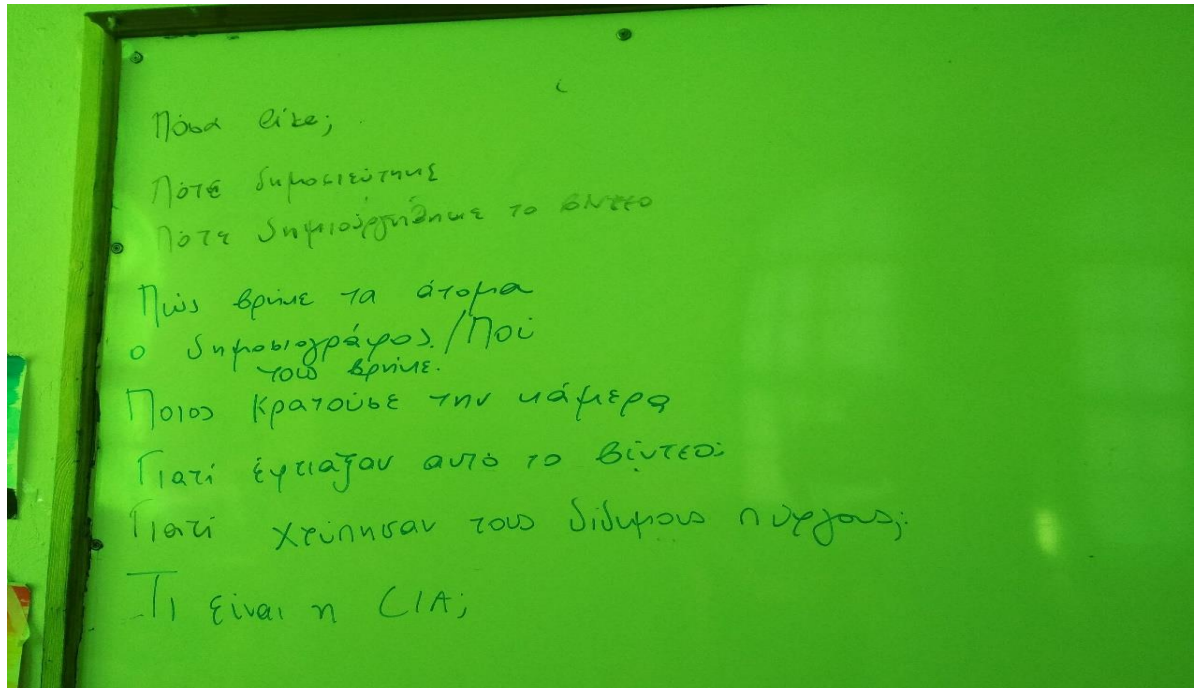 Πόσα like;
Πότε δημοσιεύτηκε
Πότε δημιουργήθηκε το βίντεο
Πώς βρήκε τα άτομα
ο δημοσιογράφος / Πού
τους βρήκε.
Ποιος κρατούσε την κάμερα
Γιατί έφτιαξαν αυτό το βίντεο;
Γιατί χτύπησαν τους δίδυμους πύργους;
Τι είναι η CIA;